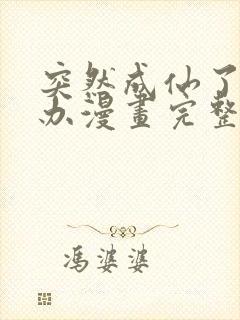 突然成仙了
办漫畫完整
馮婆婆